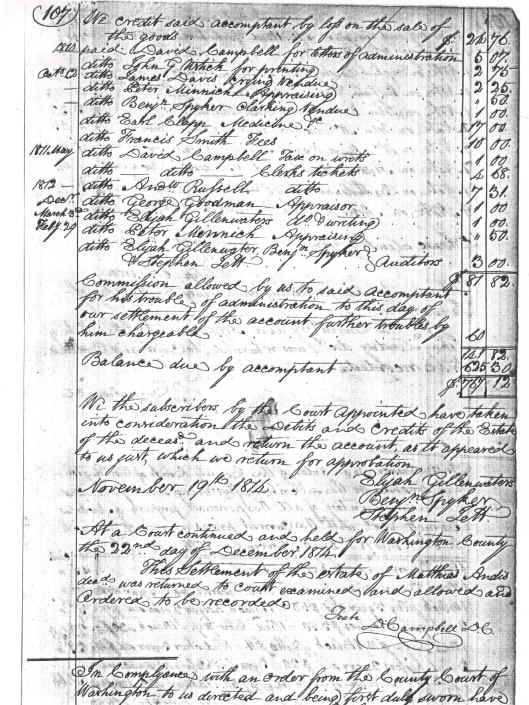 (107)
We credit said accomptant by loss on the sale of
the goods $ 24 76
paid David Campbell for letters of administration 5 07
ditto John G. for printing 2 75
Oct. 12 ditto James Davis Crying Vendue 2 00
ditto Peter Minnich Appraising " 50
ditto Benjn. Spyker Clarking Vendue 1 00
ditto Earl Clapp Medicine &c 17 00
ditto Francis Smith Fees 10 00
1811 May ditto David Campbell Tax on writs 1 00
ditto ditto Clerks tickets 4 68
1812 ditto Andw Russell ditto 7 31
Decr. ditto George Goodman Appraisor 1 00
March 3d ditto Elijah Gillenwaters do & writing 1 00
Feby 29 ditto Peter Minnich Appraising " 50
ditto Elijah Gillenwater, Benjn Spyker
& Stephen Lett } Auditors 3 00
Commission allowed by us to said accomptant $ 81 82
for his trouble of administration to this day of
our settlement of the account further troubles by
him chargeable 60
141 82
Balance due by accomptant 625 30
$ 767 12
We the subscribers by the Court appointed have taken
into consideration the Debits and Credits of the Estate
of the deceasd. and return the account, as to appeared
to us just, which we return for approbation
Elijah Gillenwaters
November 19th 1814 Benjn Spyker
Stephen Lett
At a Court continued and held for Washington County
the 22nd day of December 1814
This Settlement of the estate of Matthias Andis
decd was returned to court examined and allowed and
Ordered to be recorded
Teste
D Campbell D.C.
In Complyance with an order from the County Court of
Washington to us directed and being first duly sworn have